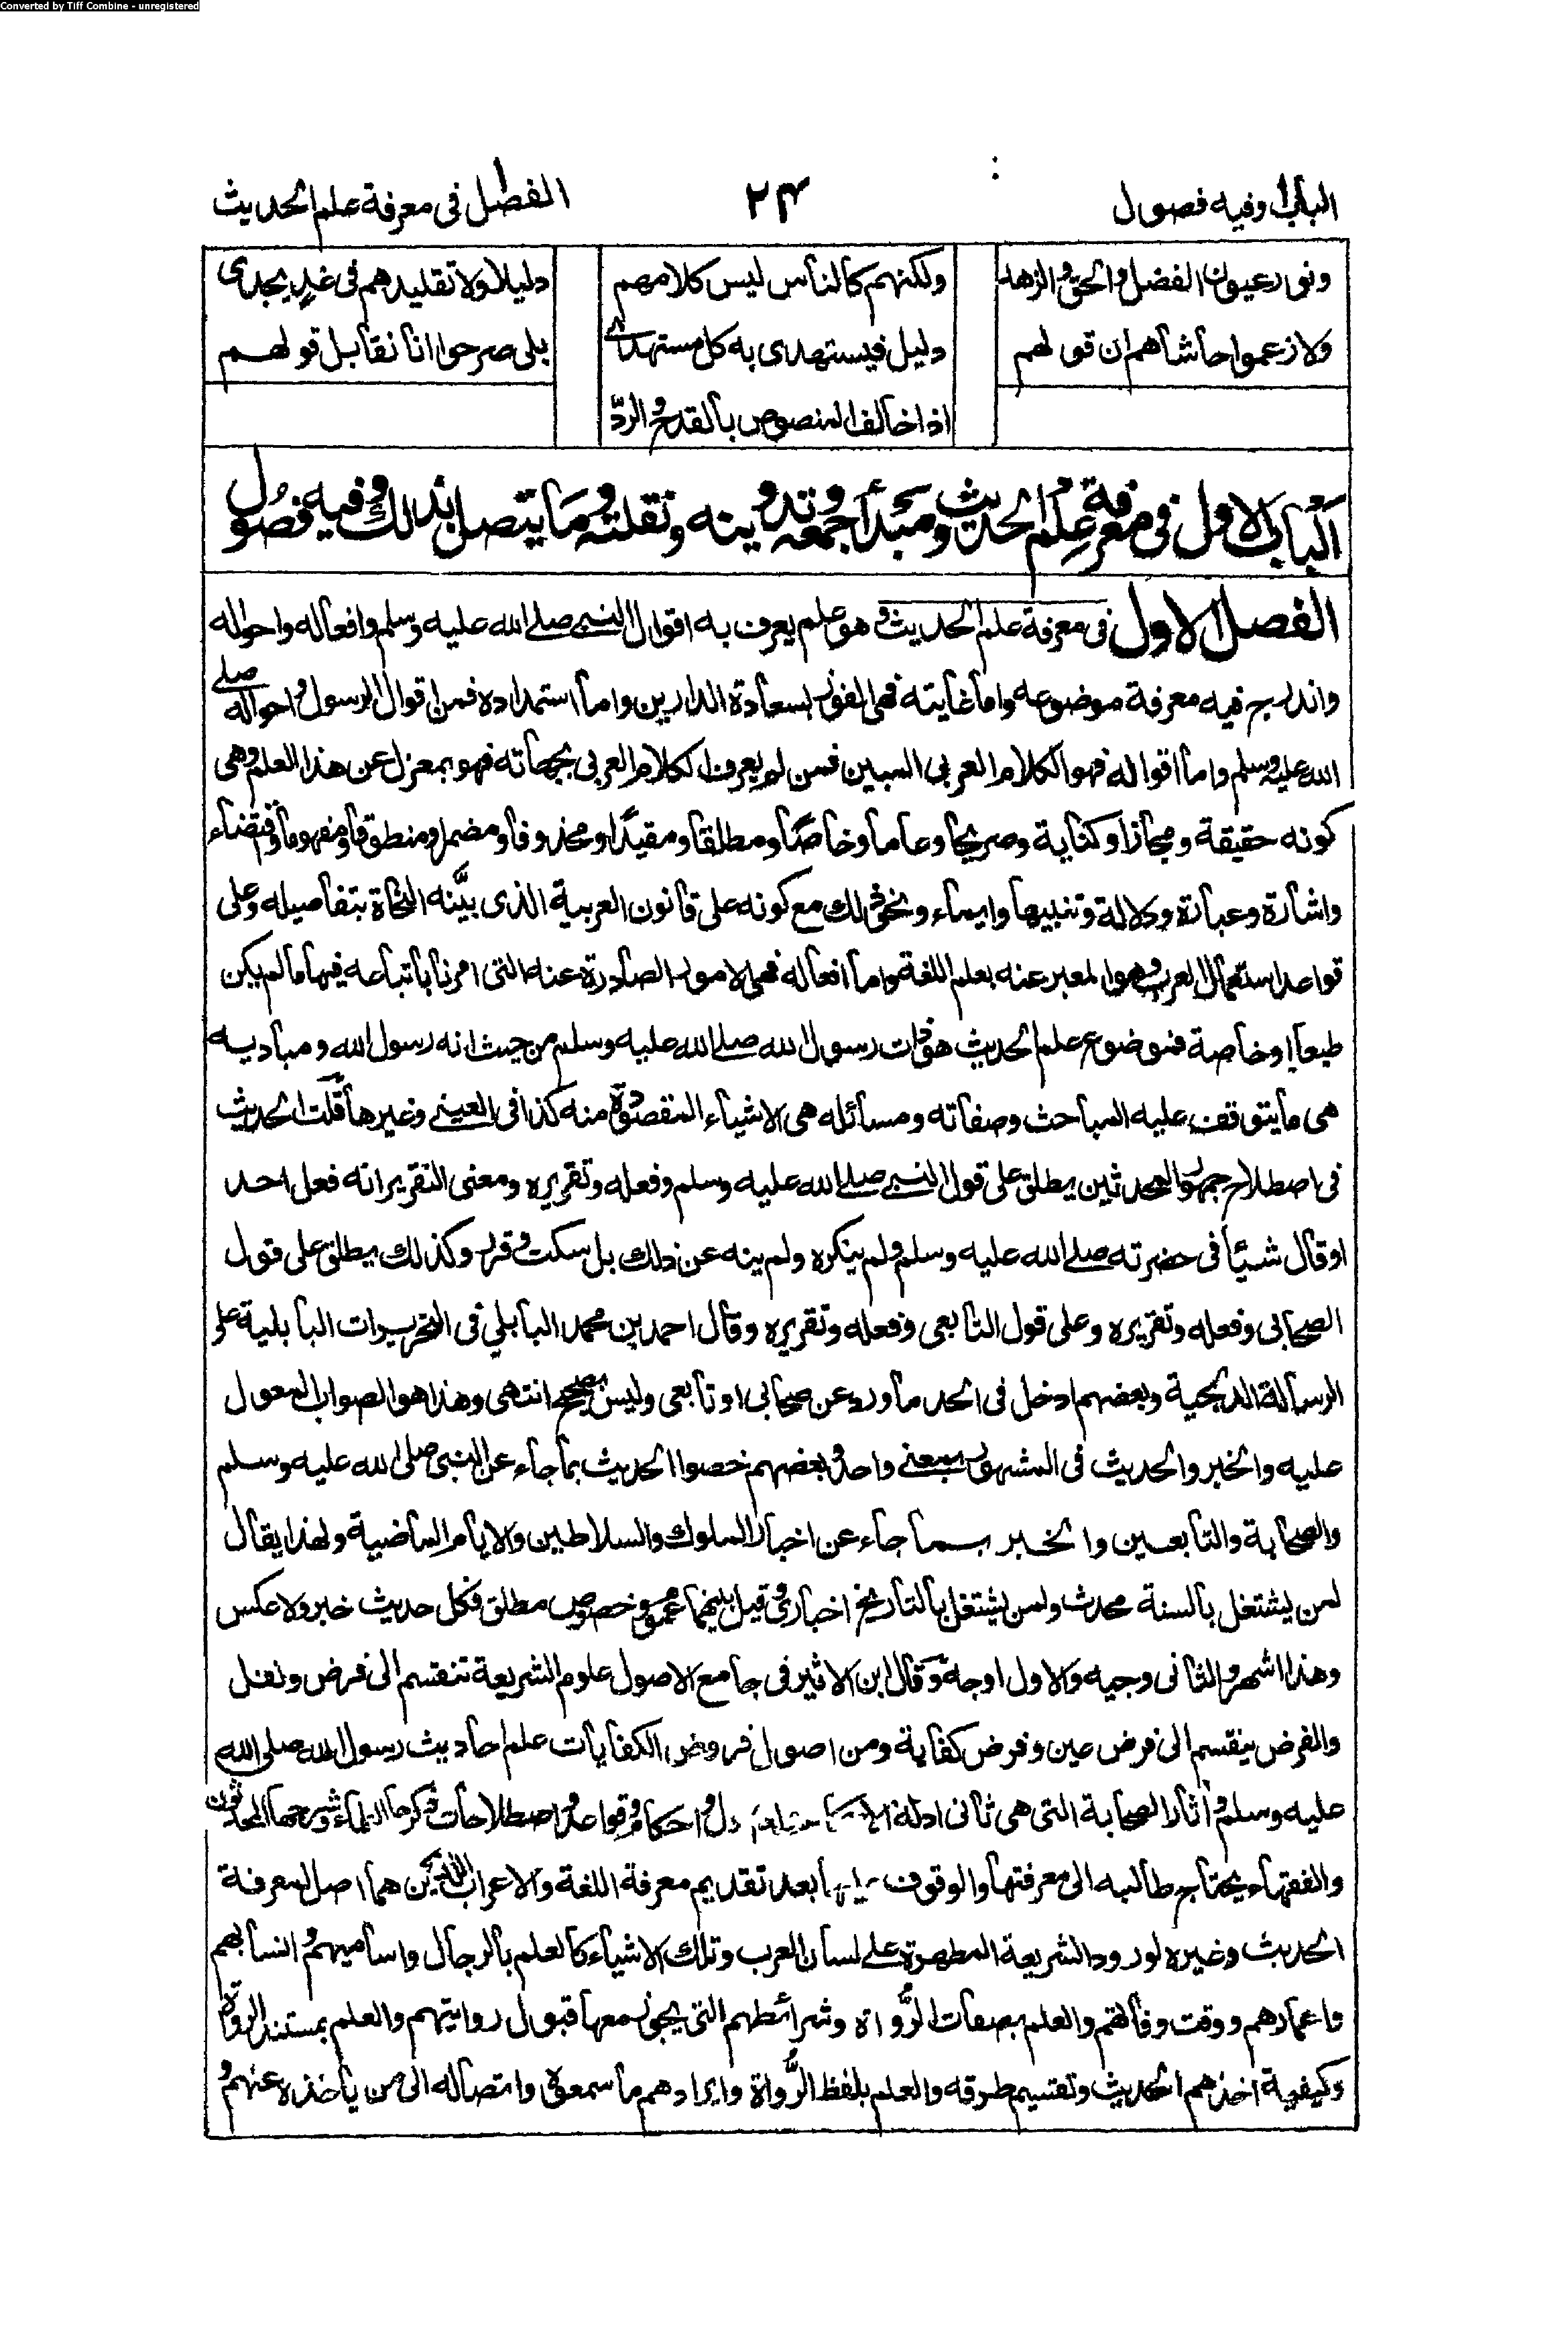 Converted by Tiff Combine - unregistered
الباب١ وفيه فصول
٢٣
الفصل١ فى معرفة علم الحديث
ونور عيون الفضل والحق والزهد
ولكنهم كالناس ليس كلامهم
دليلا ولا تقليدهم فى غد يجدى
ولا زعموا حاشاهم ان قولهم
دليل فيستهدى به كل مستهدى
بلى صرحوا انا نقابل قولهم
اذا خالف المنصوص بالقدح والردّ
الباب الاول فى معرفة علم الحديث ومبدأ جمعه وتدوينه ونقلته وما يتصل بذلك وفيه فصول
الفصل الاول فى معرفة علم الحديث وهو علم يعرف به اقوال النبى صلے الله عليه وسلم وافعاله واحواله
واندرج فيه معرفة موضوعه واما غايته فهى الفوز بسعادة الدارين واما استمداده فمن اقوال الرسول واحواله صلے
الله عليه وسلم واما اقواله فهو الكلام العربى المبين فمن لم يعرف الكلام العربى بجهاته فهو بمعزل عن هذا العلم وهى
كونه حقيقة ومجازا وكناية وصريحا وعاما وخاصّا ومطلقا ومقيدًا ومحذوفا ومضمرا ومنطوقا ومفهوما واقتضاء
واشارة وعبارة ودلالة وتنبيها وايماء ونحو ذلك مع كونه على قانون العربية الذى بيّنه النحاة بتفاصيله وعلى
قواعد استعمال العرب وهو المعبر عنه بعلم اللغة واما افعاله فهى الامور الصادرة عنه التى امرنا باتباعه فيها ما لم يكن
طبعا او خاصة فموضوع علم الحديث هو ذات رسول الله صلے الله عليه وسلم من حيث انه رسول الله ومباديه
هى ما يتوقف عليه المباحث وصفاته ومسائله هى الاشياء المقصودة منه كذا فى العينے وغيرها قلت الحديث
فى اصطلاح جمهور المحدثين يطلق على قول النبى صلے الله عليه وسلم وفعله وتقريره ومعنى التقرير انه فعل احد
او قال شيئا فى حضرته صلے الله عليه وسلم ولم ينكره ولم ينه عن ذلك بل سكت وقرر وكذلك يطلق على قول
الصحابى وفعله وتقريره وعلى قول التابعى وفعله وتقريره وقال احمد بن محمد البابلي فى التحريرات البابلية على
الرسالة الدلجية وبعضهم ادخل فى الحد ما ورد عن صحابى او تابعى وليس بصحيح انتهى وهذا هو الصواب المعول
عليه والخبر والحديث فى المشهور بمعنے واحد وبعضهم خصوا الحديث بما جاء عن النبى صلى الله عليه وسلم
والصحابة والتابعين والخبر بما جاء عن اخبار الملوك والسلاطين والايام الماضية ولهذا يقال
لمن يشتغل بالسنة محدث ولمن يشتغل بالتاريخ اخبارى وقيل بينهما عموم وخصوص مطلق فكل حديث خبر ولا عكس
وهذا اشهر والثانى وجيه والاول اوجه وقال ابن الاثير فى جامع الاصول علوم الشريعة تنقسم الى فرض ونفل
والفرض ينقسم الى فرض عين وفرض كفاية ومن اصول فروض الكفايات علم احاديث رسول الله صلى الله
عليه وسلم وآثار الصحابة التى هى ثانى ادلة واحكام وقواعد واصطلاحات ذكرها العلماء وشرحها المحدثون
والفقهاء يحتاج طالبه الى معرفتها والوقوف بعد تقديم معرفة اللغة والاعراب اللذين هما اصل لمعرفة
الحديث وغيره لورود الشريعة المطهرة على لسان العرب وتلك الاشياء كالعلم بالرجال واساميهم وانسابهم
واعمارهم ووقت وفاتهم والعلم بصفات الرُّواة وشرائطهم التى يجوز معها قبول روايتهم والعلم بمستند الرواة
وكيفية اخذهم الحديث وتقسيم طرقه والعلم بلفظ الرُّواة وايرادهم ما سمعوه واتصاله الى من ياخذه عنهم و